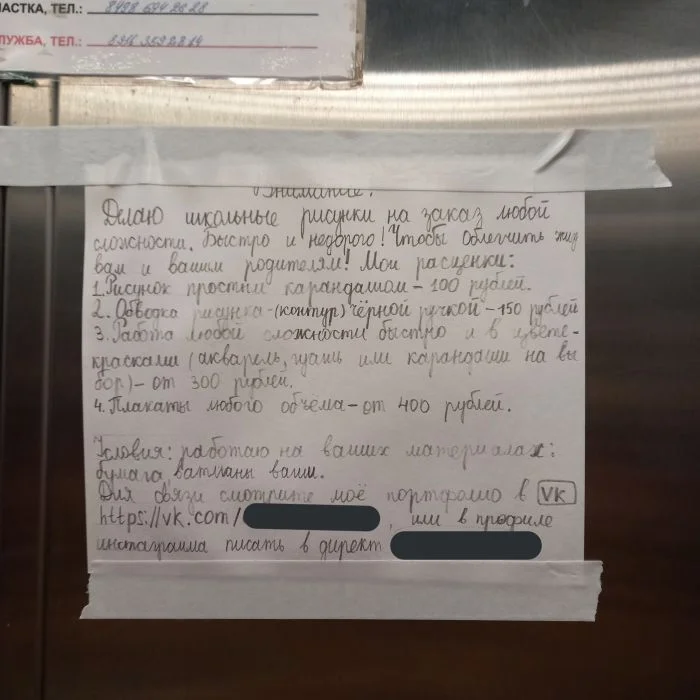 АСТКА, ТЕЛ.: 8498 694 2628
ЛУЖБА, ТЕЛ.:
Внимание!
Делаю школьные рисунки на заказ любой
сложности. Быстро и недорого! Чтобы облегчить жиз
вам и вашим родителям! Мои расценки:
1. Рисунок простым карандашом - 100 рублей.
2. Обводка рисунка - (контур) чёрной ручкой - 150 рублей
3. Работа любой сложности быстро и в цвете -
красками (акварель, гуашь или карандаши на вы
бор) - от 300 рублей.
4. Плакаты любого объёма - от 400 рублей.
Условия: работаю на ваших материалах:
бумага, ватманы ваши.
Для связи смотрите моё портфолио в VK
https://vk.com/ , или в профиле
инстаграмма писать в директ